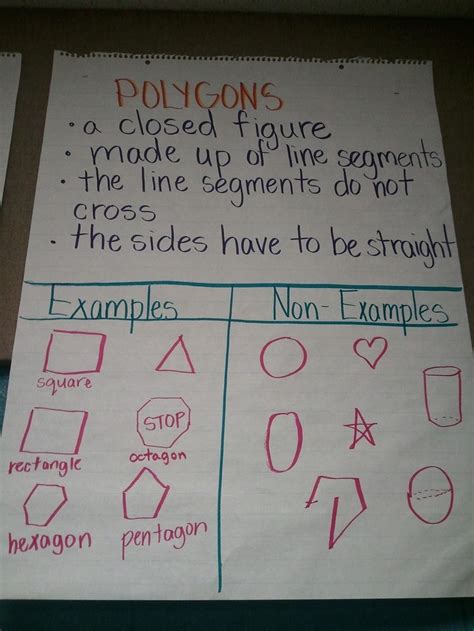 POLYGONS
· a closed figure
· made up of line segments
· the line segments do not
cross
· the sides have to be straight
Examples
Non-Examples
square
STOP
rectangle
octagon
hexagon
pentagon